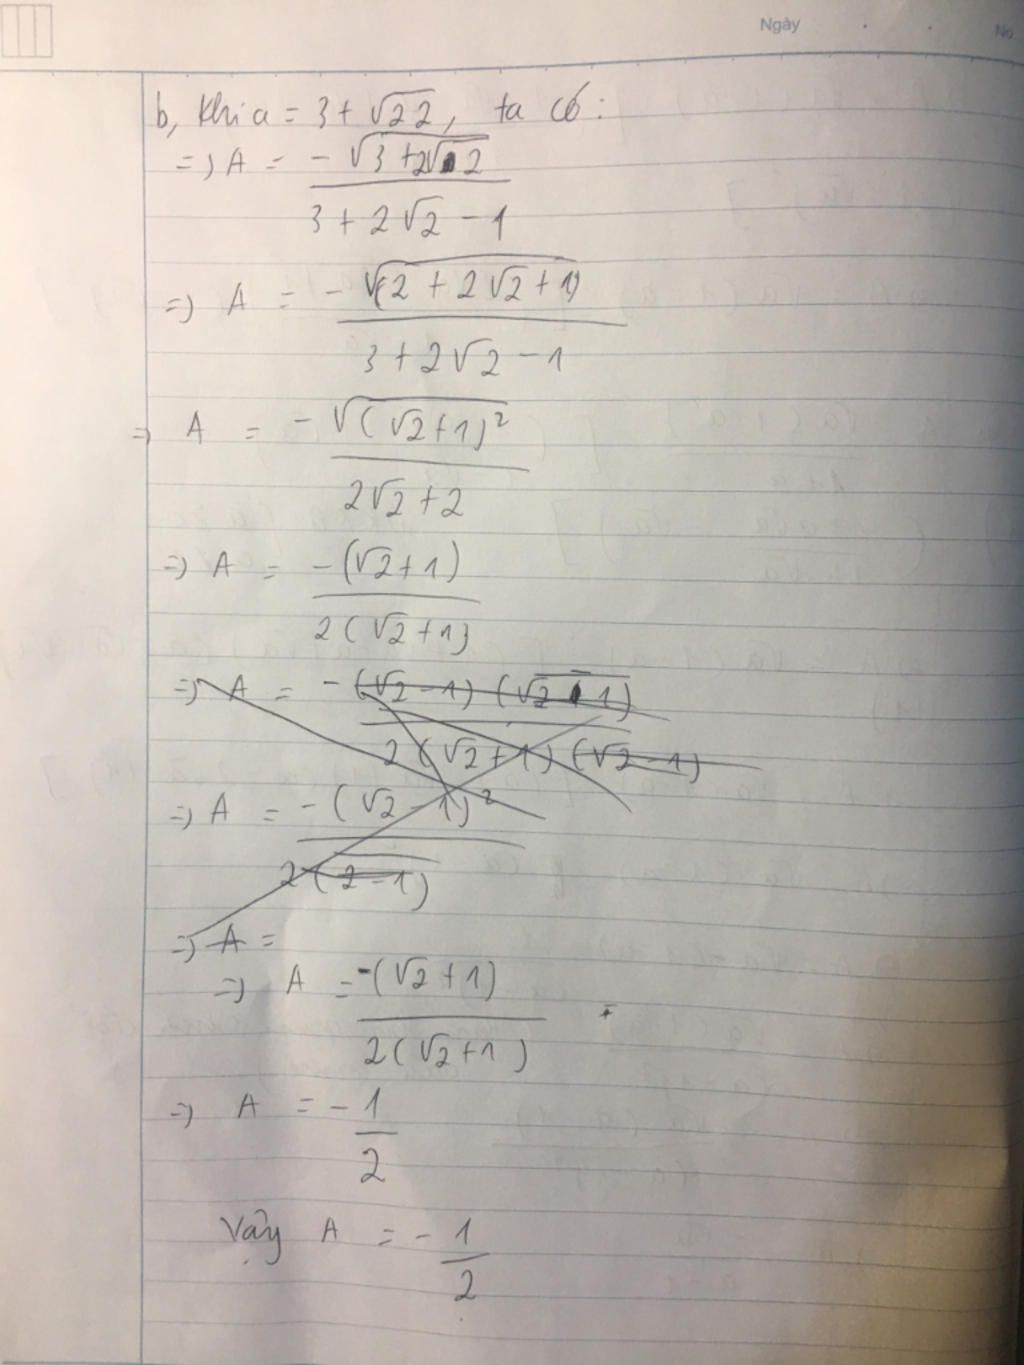 Ngày . . No
b, Khi a = 3 + √22, ta có:
=> A = -√(3 + 2√2) / (3 + 2√2 - 1)
=> A = -√(2 + 2√2 + 1) / (3 + 2√2 - 1)
=> A = -√((√2 + 1)²) / (2√2 + 2)
=> A = -(√2 + 1) / 2(√2 + 1)
=> A = -(√2 - 1)(√2 - 1) / 2(√2 + 1)(√2 - 1)
=> A = -(√2 - 1)² / 2(2 - 1)
=> A =
=> A = -(√2 + 1) / 2(√2 + 1)
=> A = -1/2
Vậy A = -1/2